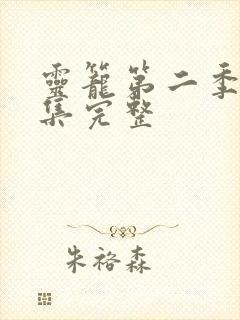 靈籠第二季
集完整
朱裕森